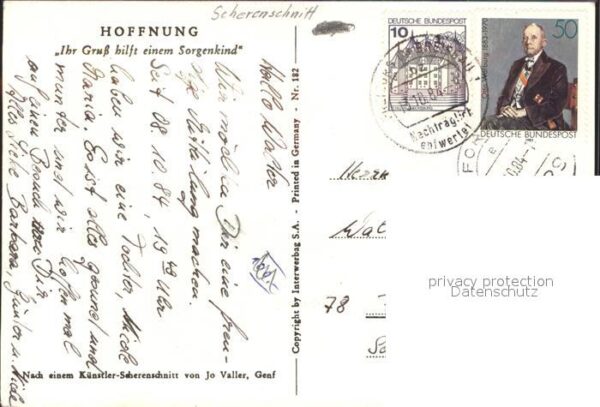 Scherenschnitt
HOFFNUNG
"Ihr Gruß hilft einem Sorgenkind"
Hallo Walter
Wir möchten Dir eine freu-
dige Mitteilung machen.
Seit 08.10.84, 19 Uhr
haben wir eine Tochter, Nicole
Maria. Es ist alles gesund und
munter und wir hoffen mal
auf einen Besuch von Dir
Alles Liebe Barbara, Günter u. Nicole
Nach einem Künstler-Scherenschnitt von Jo Valler, Genf
Copyright by Interwerbag S.A. - Printed in Germany - Nr. 182
10
DEUTSCHE BUNDESPOST
50
Otto Warburg 1883-1970
DEUTSCHE BUNDESPOST
10.84
Nachträglich
entwertet
Herrn
Wal
78
privacy protection
Datenschutz